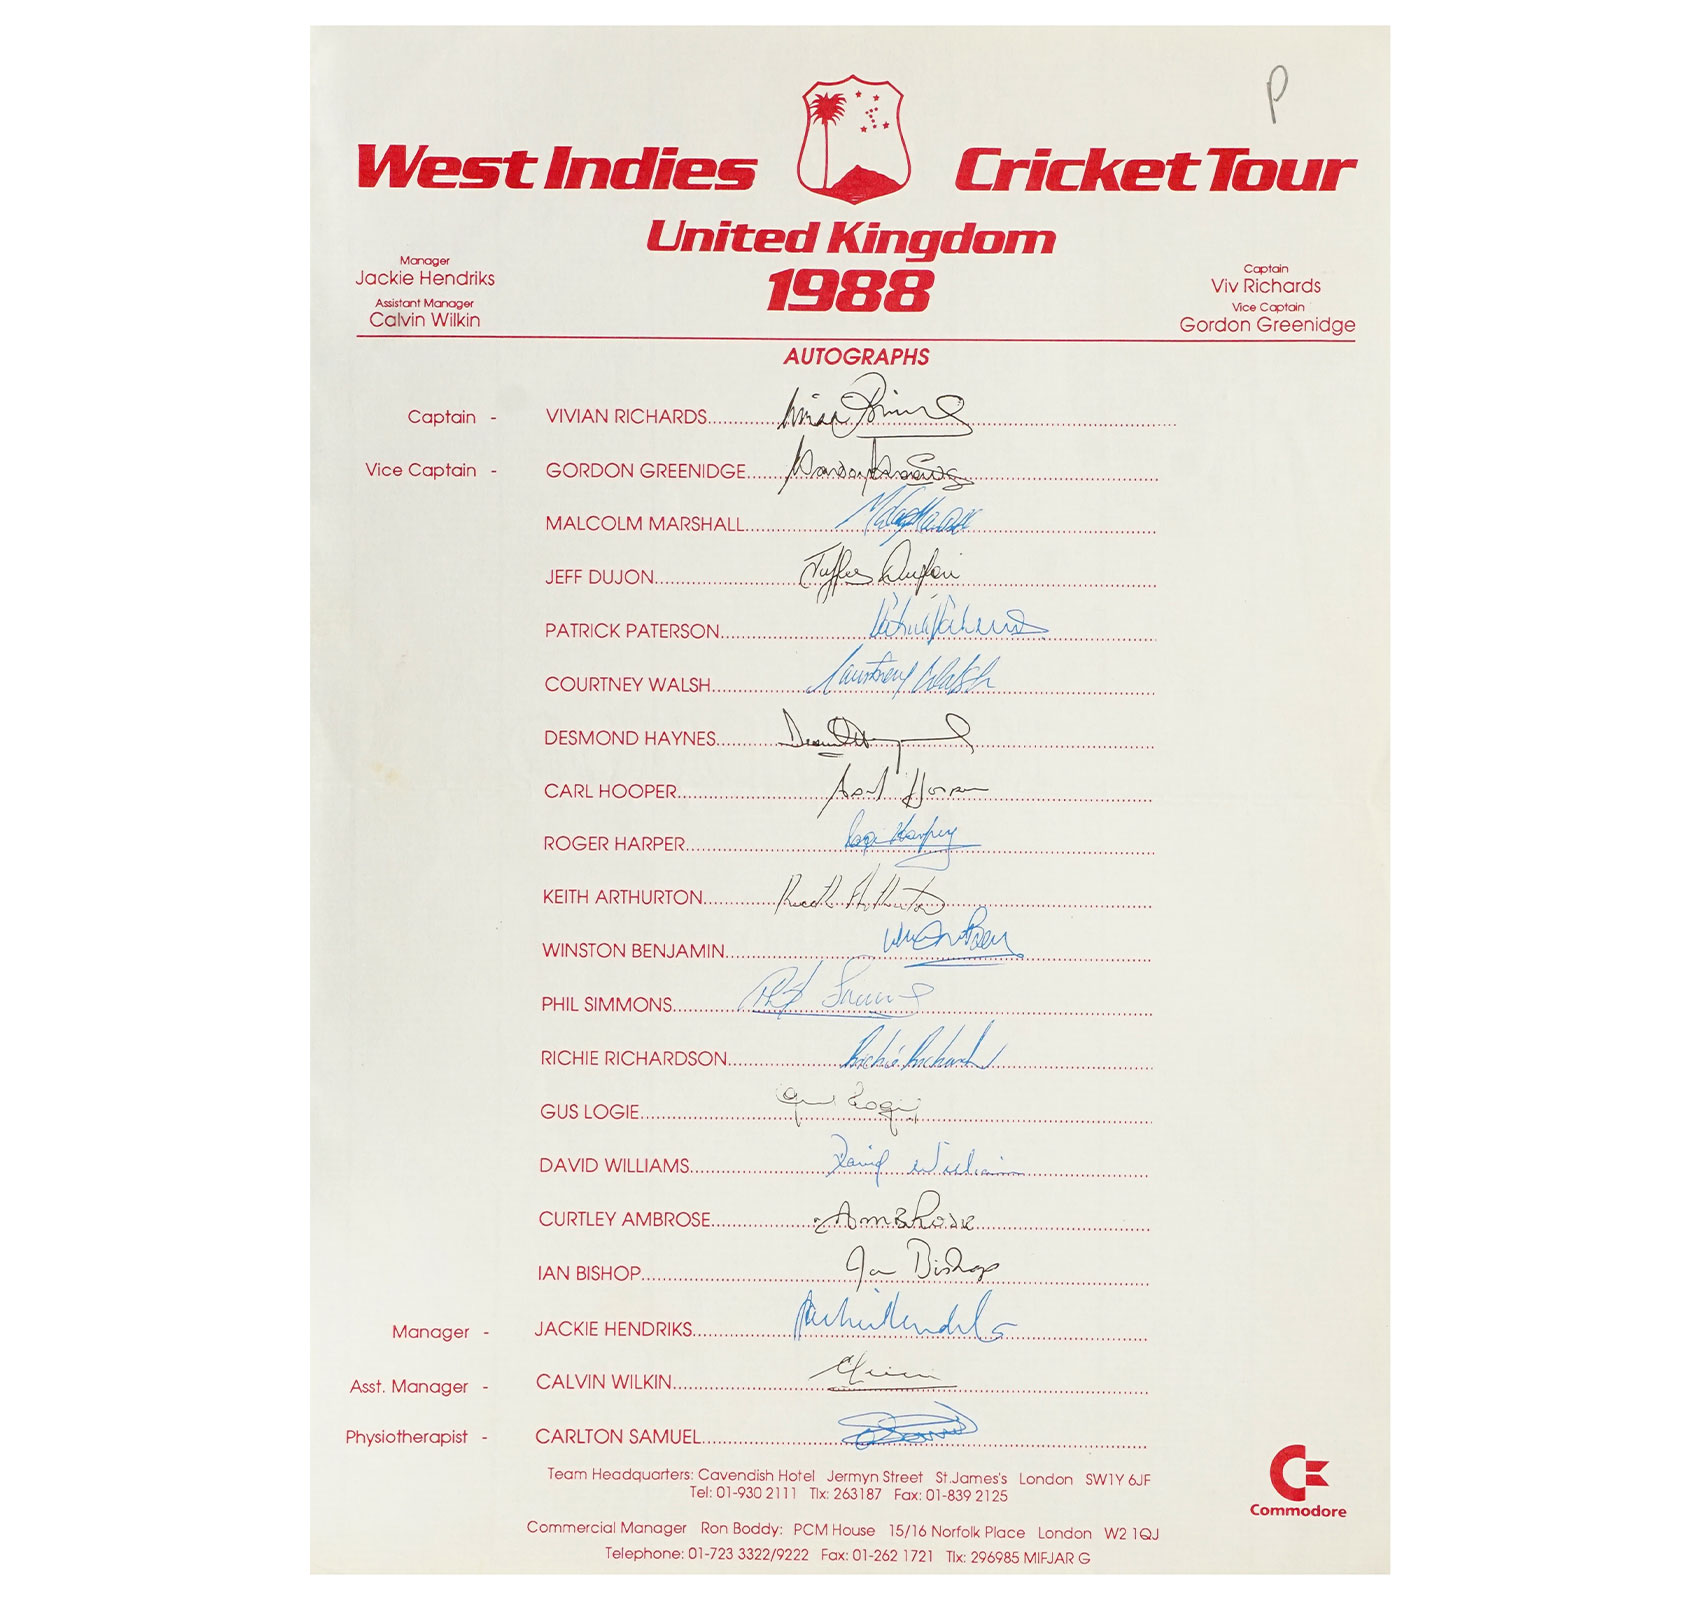 P
West Indies Cricket Tour
United Kingdom
1988
Manager
Jackie Hendriks
Assistant Manager
Calvin Wilkin
Captain
Viv Richards
Vice Captain
Gordon Greenidge
AUTOGRAPHS
Captain - VIVIAN RICHARDS Vivian Richards
Vice Captain - GORDON GREENIDGE Gordon Greenidge
MALCOLM MARSHALL
JEFF DUJON Jeffrey Dujon
PATRICK PATERSON
COURTNEY WALSH Courtney Walsh
DESMOND HAYNES
CARL HOOPER Carl Hooper
ROGER HARPER
KEITH ARTHURTON Keith Arthurton
WINSTON BENJAMIN
PHIL SIMMONS
RICHIE RICHARDSON
GUS LOGIE Gus Logie
DAVID WILLIAMS David Williams
CURTLEY AMBROSE Ambrose
IAN BISHOP Ian Bishop
Manager - JACKIE HENDRIKS Jackie Hendriks
Asst. Manager - CALVIN WILKIN
Physiotherapist - CARLTON SAMUEL
Team Headquarters: Cavendish Hotel Jermyn Street St.James's London SW1Y 6JF
Tel: 01-930 2111 Tlx: 263187 Fax: 01-839 2125
Commercial Manager Ron Boddy: PCM House 15/16 Norfolk Place London W2 1QJ
Telephone: 01-723 3322/9222 Fax: 01-262 1721 Tlx: 296985 MIFJAR G
Commodore